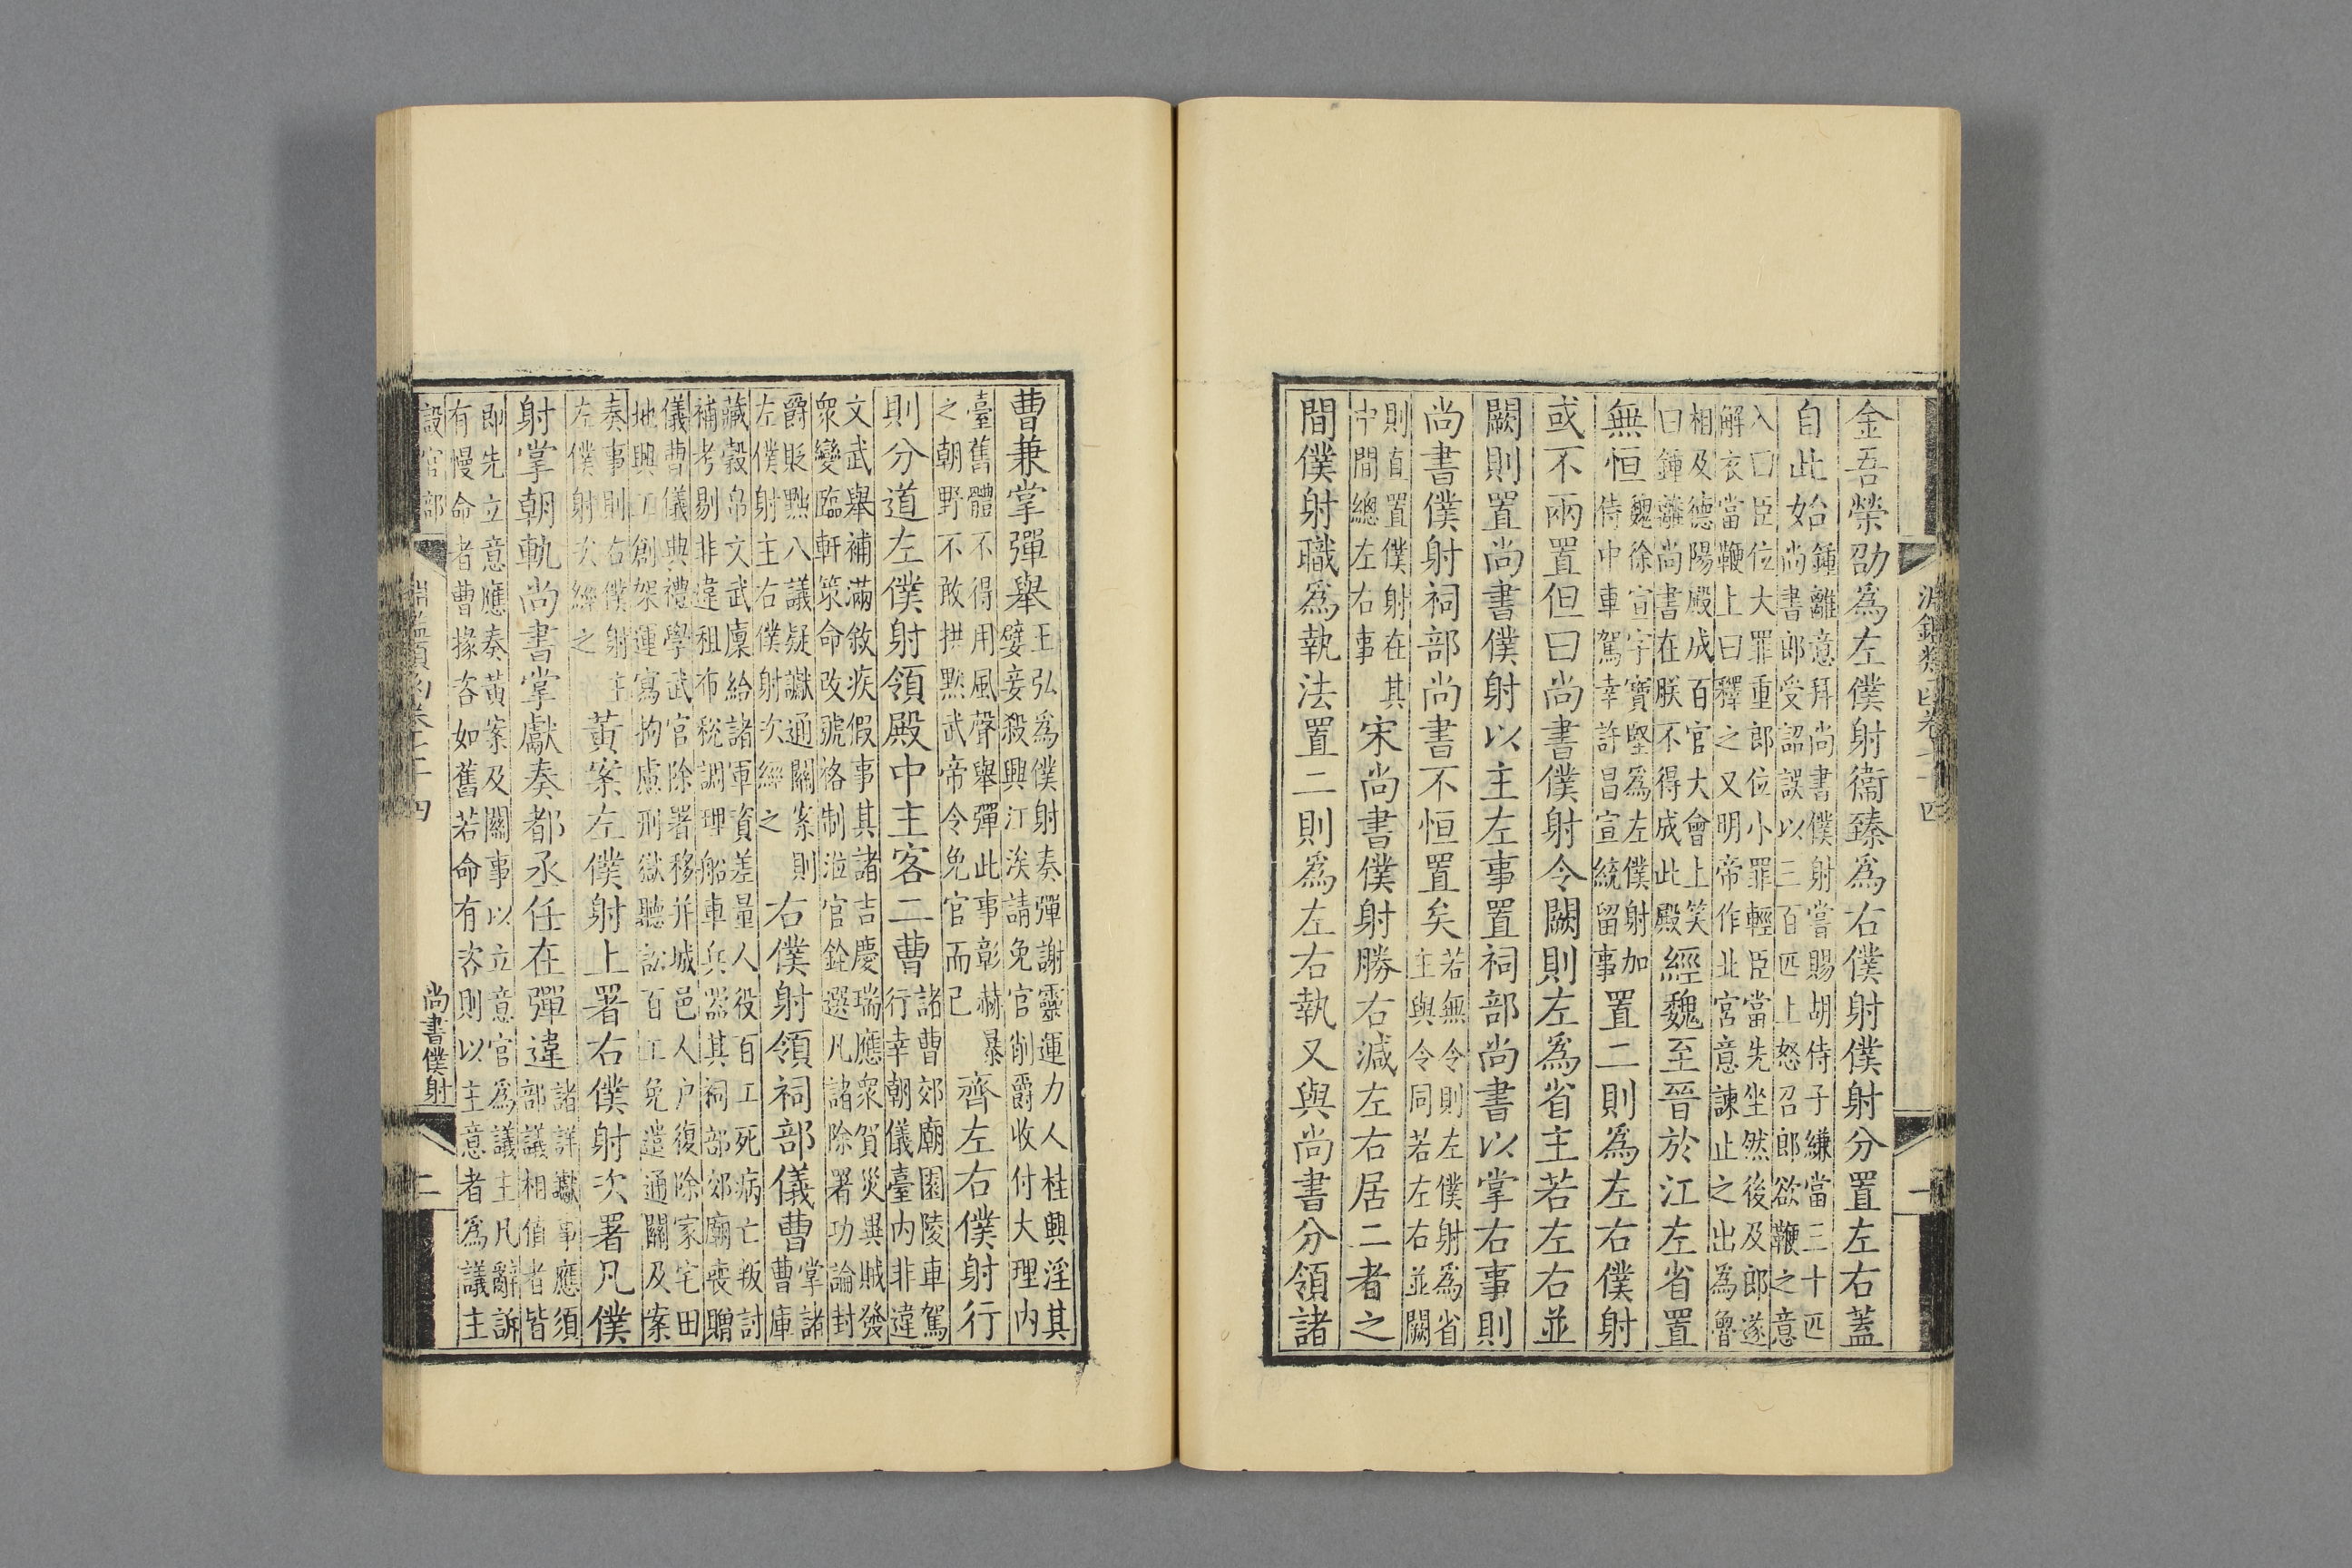 淵鑑類函卷七十四
一
金吾榮劭爲左僕射衞臻爲右僕射僕射分置左右蓋
自此始鍾離意拜尚書僕射嘗賜胡侍子縑當三十匹
尚書郎受詔誤以三百匹上怒召郎欲鞭之意
入曰臣位大罪重郎位小罪輕臣當先坐然後及郎遂
解衣當鞭上曰釋之又明帝作北宮意諫止之出為魯
相及德陽殿成百官大會上笑
曰鍾離尚書在朕不得成此殿經魏至晉於江左省置
無恒魏徐宣字寶堅爲左僕射加
侍中車駕幸許昌宣統留事置二則爲左右僕射
或不兩置但曰尚書僕射令闕則左爲省主若左右並
闕則置尚書僕射以主左事置祠部尚書以掌右事則
尚書僕射祠部尚書不恒置矣若無令則左僕射為省
主與令同若左右並闕
則直置僕射在其
中間總左右事宋尚書僕射勝右減左右居二者之
間僕射職爲執法置二則爲左右執又與尚書分領諸
曹兼掌彈舉王弘爲僕射奏彈謝靈運力人桂興淫其
嬖妾殺興江涘請免官削爵收付大理內
臺舊體不得用風聲舉彈此事彰赫暴
之朝野不敢拱默武帝令免官而已齊左右僕射行
則分道左僕射領殿中主客二曹諸曹郊廟園陵車駕
行幸朝儀臺內非違
文武舉補滿敘疾假事其諸吉慶瑞應衆賀災異賊發
衆變臨軒策命改號格制涖官銓選凡諸除署功論封
爵貶黜八議疑讞通關案則
左僕射主右僕射次經之右僕射領祠部儀曹掌諸
曹庫
藏穀帛文武廩給諸軍資差量人役百工死病亡叛討
補考剔非違租布稅調理船車兵器其祠部郊廟喪贈
儀曹儀典禮學武官除署移并城邑人戶復除家宅田
地興工創架運寫拘慮刑獄聽訟百工免遣通關及案
奏事則右僕射主
左僕射次經之黃案左僕射上署右僕射次署凡僕
射掌朝軌尚書掌讞奏都丞任在彈違諸詳讞事應須
部議相值者皆
即先立意應奏黃案及關事以立意官爲議主凡辭訴
有慢命者曹掾咨如舊若命有咨則以主意者爲議主
設官部
淵鑑類函卷七十四
尚書僕射
二